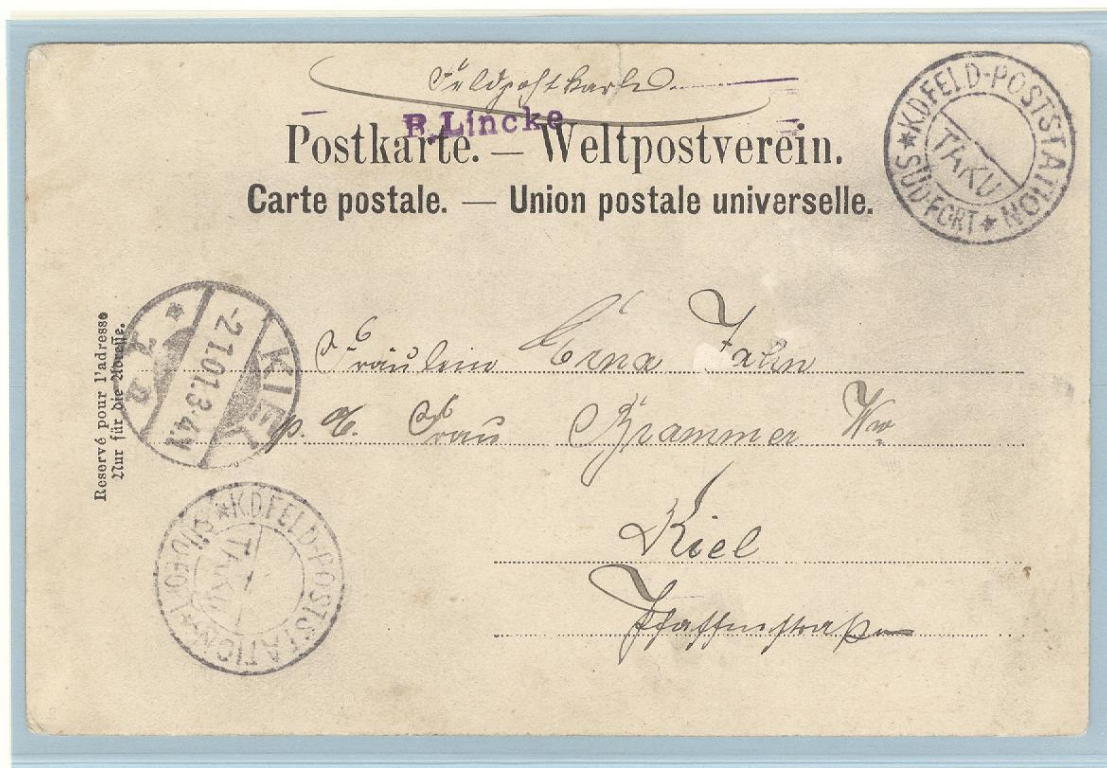 Feldpostkarte
B. Lincke
Postkarte. — Weltpostverein.
Carte postale. — Union postale universelle.
★ K.D. FELD-POSTSTATION ★ SÜDFORT
TAKU
Reservé pour l'adresse
Nur für die Adresse.
KIEL
-2.1.01.3-4N
Fräulein Erna Jahn
p. A. Frau Brammer Ww
Kiel
Pfaffenstraße
★ K.D. FELD-POSTSTATION ★ SÜDFORT
TAKU